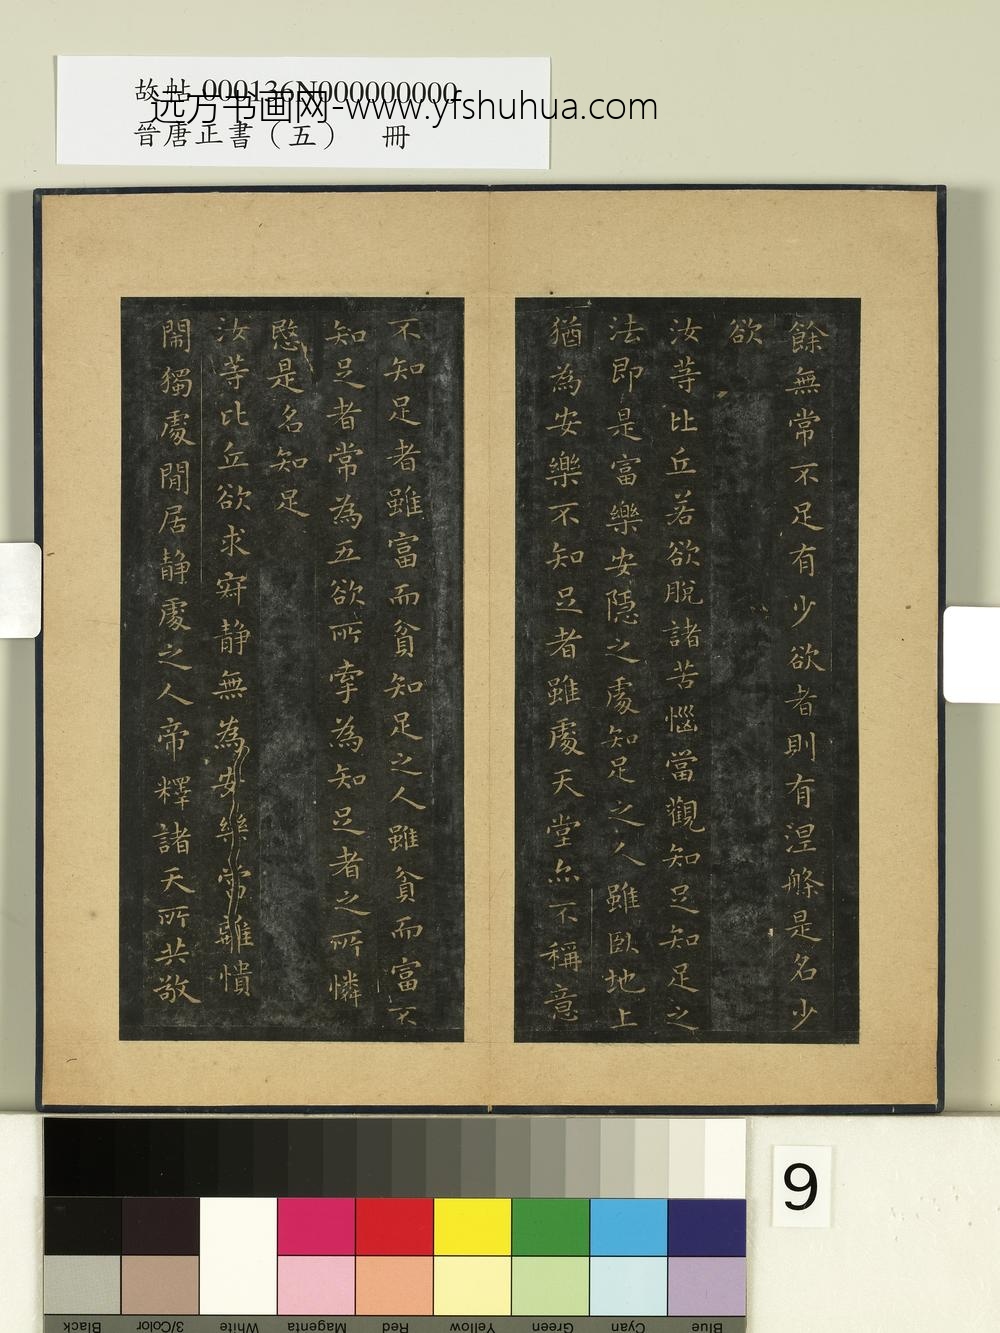 故帖 000136N000000000
远方书画网-www.yfshuhua.com
晉唐正書（五） 冊
餘無常不足有少欲者則有涅槃是名少
欲
汝等比丘若欲脫諸苦惱當觀知足知足之
法即是富樂安隱之處知足之人雖臥地上
猶為安樂不知足者雖處天堂亦不稱意
不知足者雖富而貧知足之人雖貧而富不
知足者常為五欲所牽為知足者之所憐
愍是名知足
汝等比丘欲求寂静無為安樂當離憒
閙獨處閒居静處之人帝釋諸天所共敬
9
Black
3/Color
White
Magenta
Red
Yellow
Green
Cyan
Blue